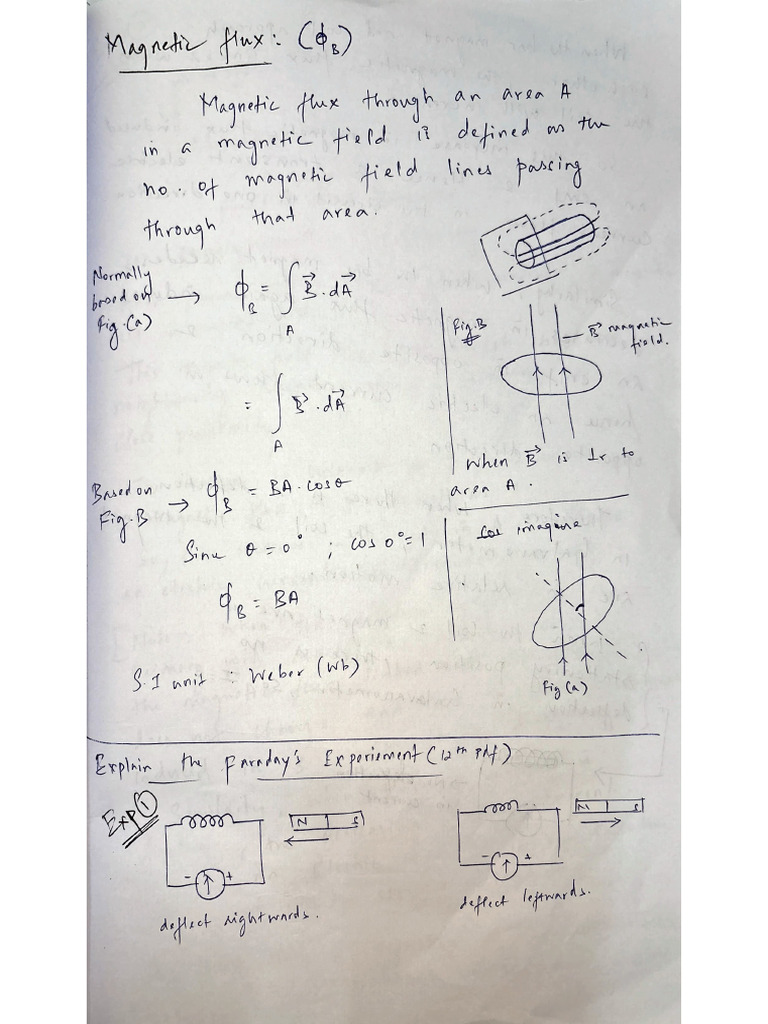 Magnetic flux: (ϕ_B)
Magnetic flux through an area A
in a magnetic field is defined as the
no. of magnetic field lines passing
through that area.
Normally
based on
Fig.(a) → ϕ_B = ∫_A B⃗ . dA⃗
= ∫_A B⃗ . dA⃗
Fig.B
B⃗ magnetic
field.
When B⃗ is ⊥r to
area A.
Based on
Fig.B → ϕ_B = BA. cosθ
Since θ = 0° ; cos 0° = 1
ϕ_B = BA
S.I unit : Weber (Wb)
imagine
Fig (a)
Explain the Faraday's Experiement (12th Pdf)
Exp ①
N S
- +
deflect rightwards.
N S
- +
deflect leftwards.